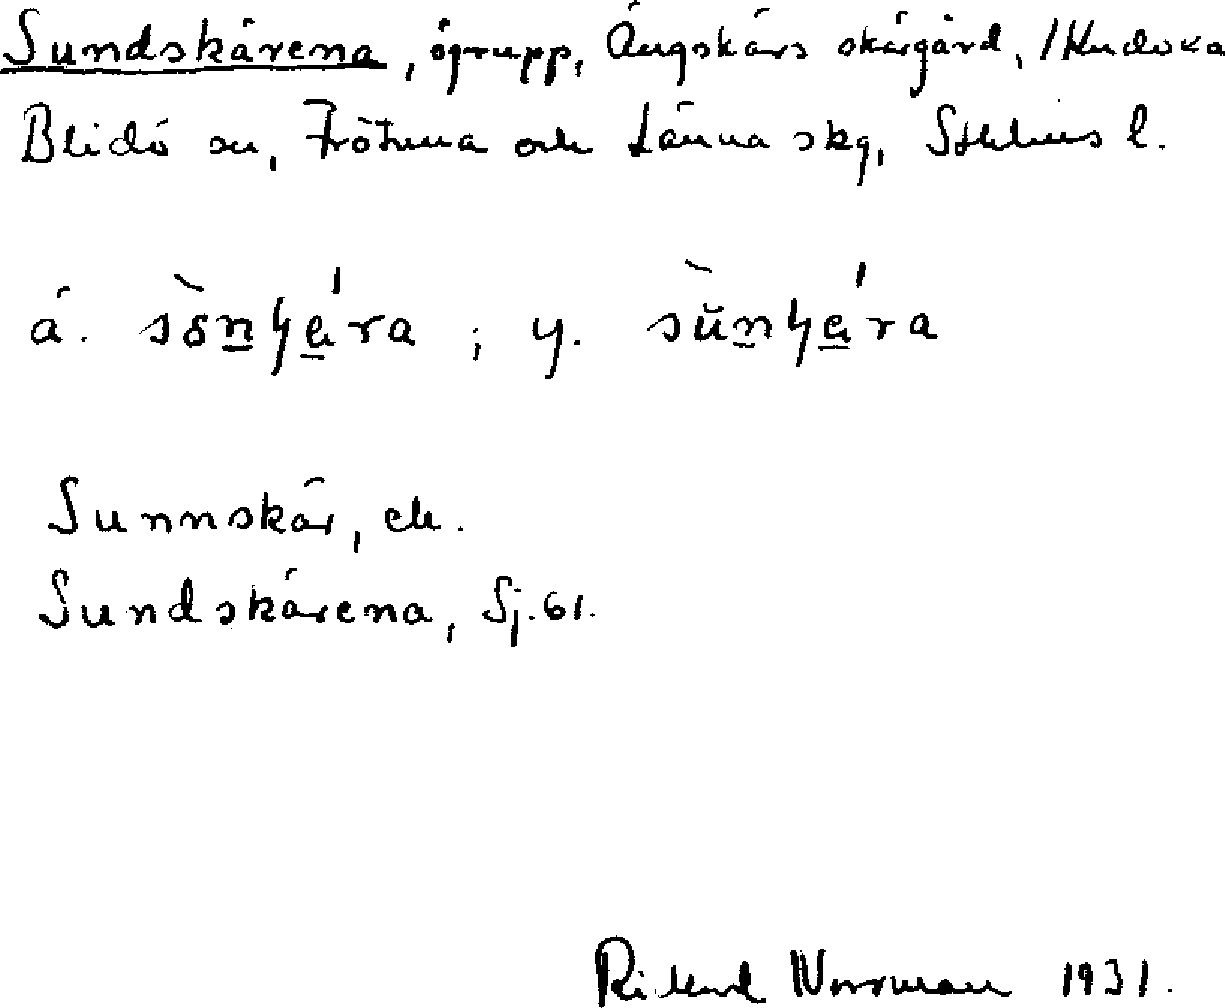 Sundskären​a, ögrupp, Ängskärs skärgård, /Hudoxa
Blidö sn, Frötuna och Länna skg, Sthlms l.
ä. sònɧä́ra ; y. sŭ̀nɧä́ra
Sunnskär, ek.
Sundskärena, Sj. 61.
Rikard Norrman 1931.